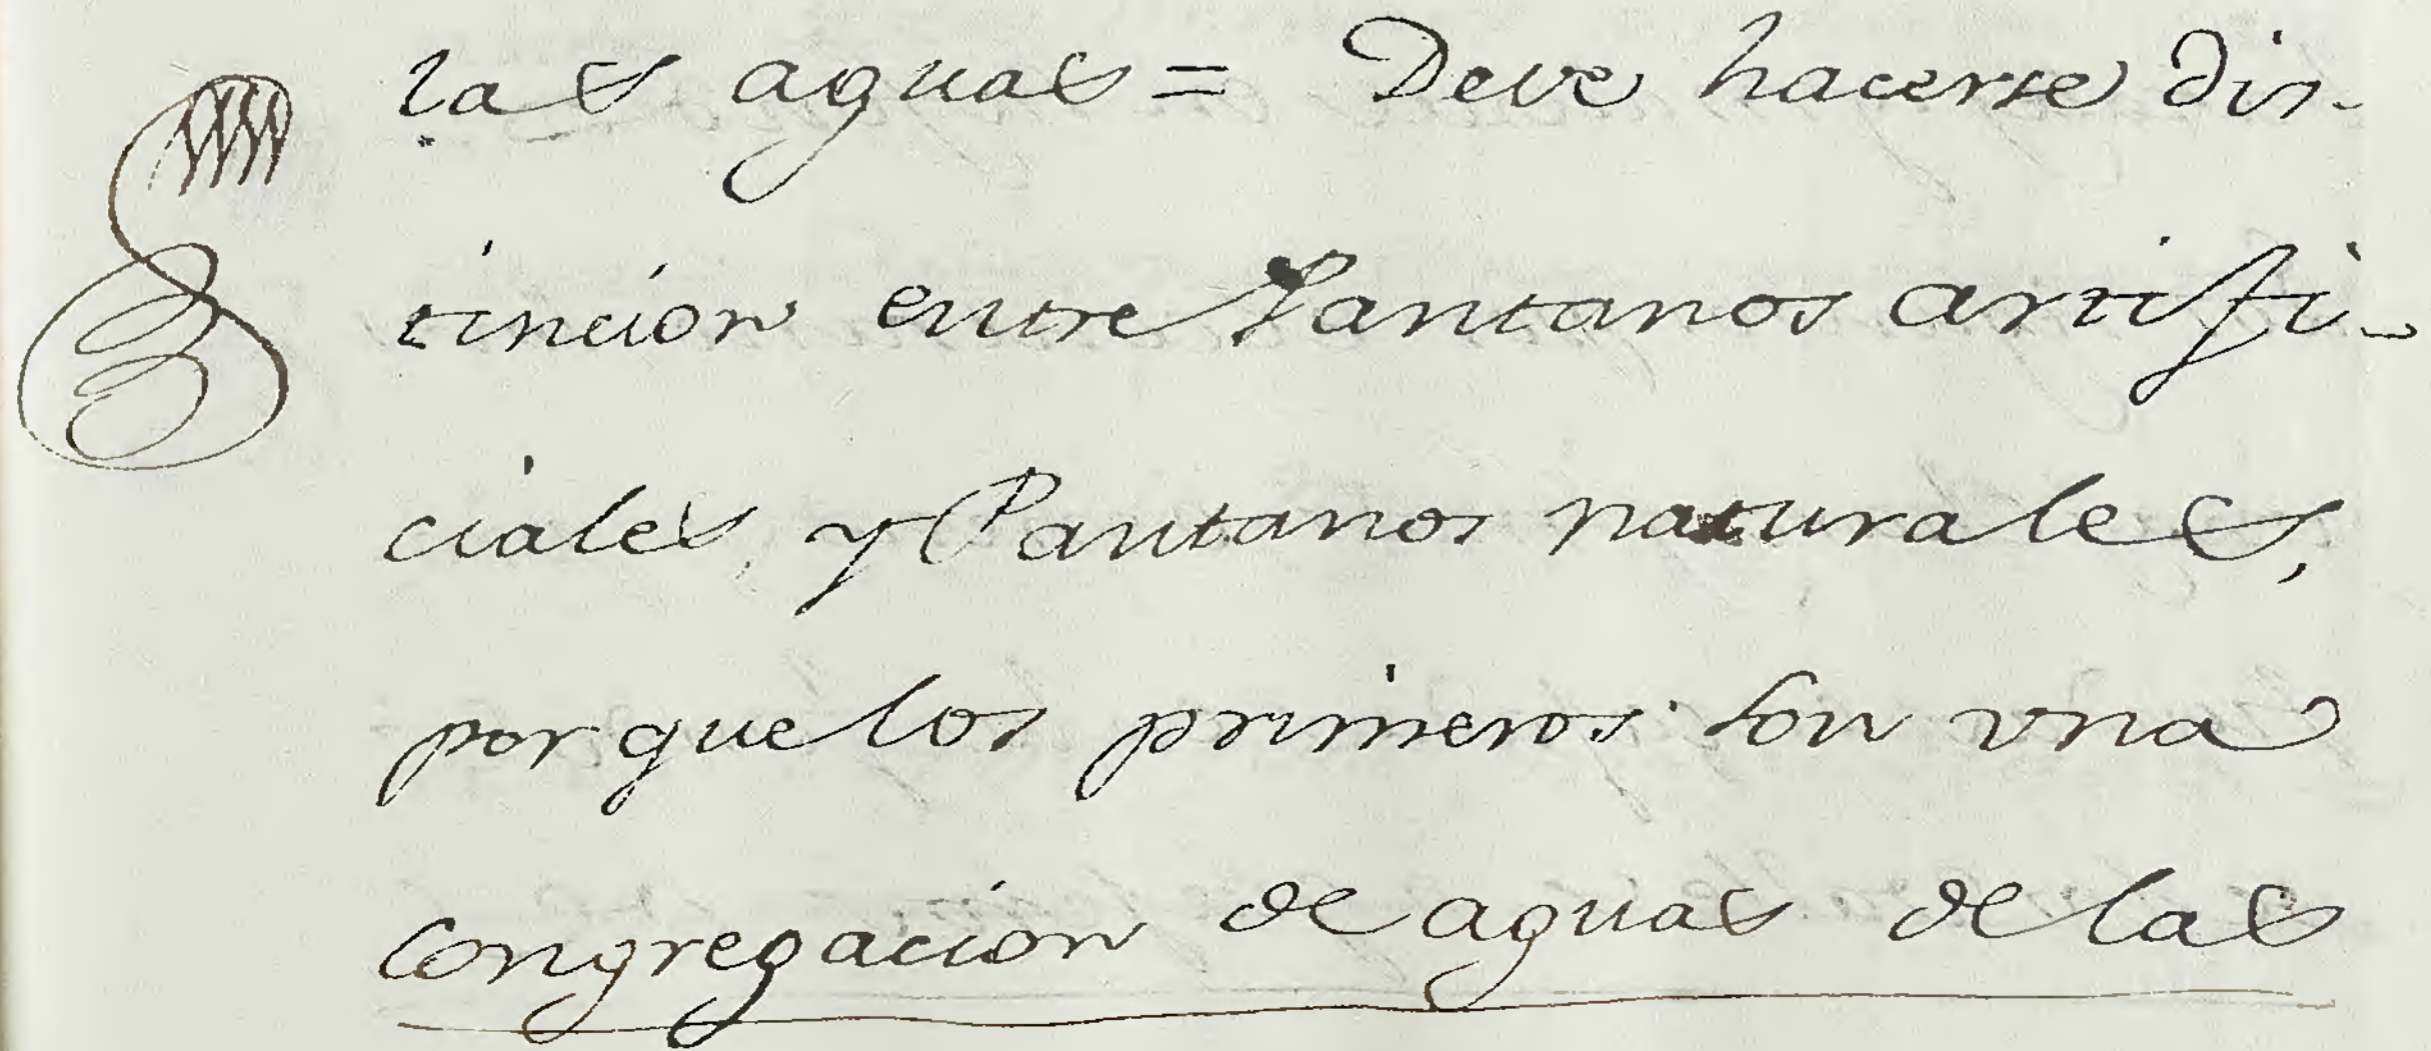 las aguas = Deve hacerse dis-
tincion entre Pantanos artifi-
ciales, y Pantanos naturales,
porque los primeros son vna
congregacion de aguas de las